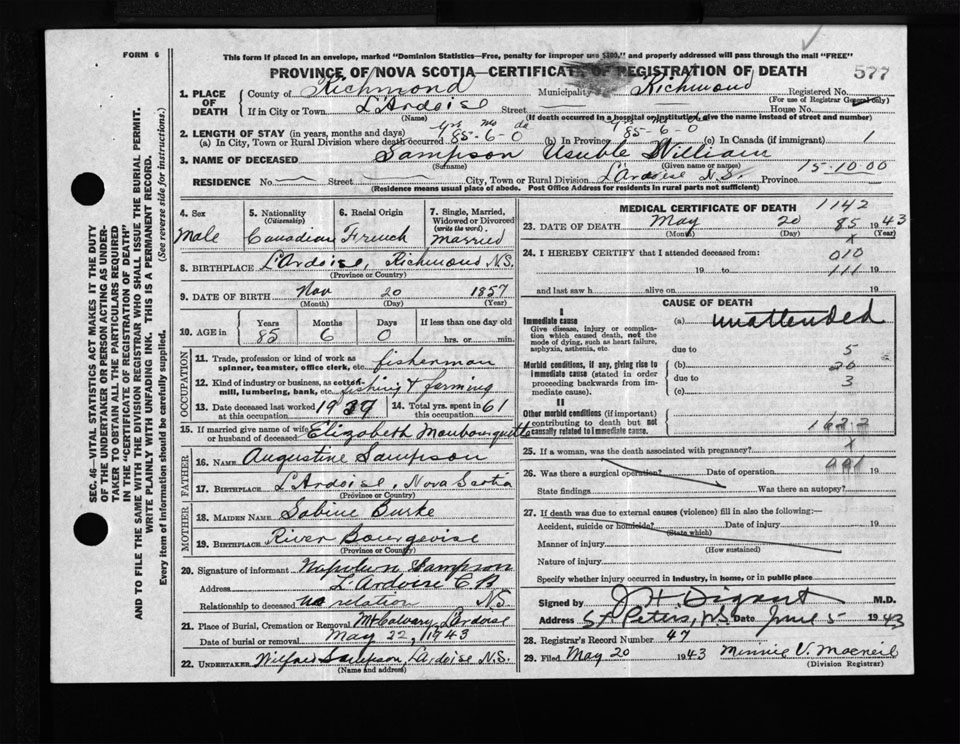 FORM 6
This form if placed in an envelope, marked "Dominion Statistics—Free, penalty for improper use $300," and properly addressed will pass through the mail "FREE"
PROVINCE OF NOVA SCOTIA—CERTIFICATE OF REGISTRATION OF DEATH
577
1. PLACE OF DEATH
County of Richmond Municipality Richmond Registered No.
(For use of Registrar General only)
If in City or Town L'Ardoise Street House No.
(Name) (If death occurred in a hospital or institution, give the name instead of street and number)
2. LENGTH OF STAY (in years, months and days)
(a) In City, Town or Rural Division where death occurred 85-6-0 (b) In Province 85-6-0 (c) In Canada (if immigrant) 1
3. NAME OF DECEASED Sampson Usuble William
(Surname) (Given name or names)
15-10-00
RESIDENCE No. Street City, Town or Rural Division L'Ardoise N.S. Province
(Residence means usual place of abode. Post Office Address for residents in rural parts not sufficient)
4. Sex
Male
5. Nationality (Citizenship)
Canadian
6. Racial Origin
French
7. Single, Married, Widowed or Divorced (write the word)
Married
8. BIRTHPLACE L'Ardoise, Richmond N.S.
(Province or Country)
9. DATE OF BIRTH Nov 20 1857
(Month) (Day) (Year)
10. AGE in Years Months Days If less than one day old
85 6 0 hrs. or min.
OCCUPATION
11. Trade, profession or kind of work as spinner, teamster, office clerk, etc. fisherman
12. Kind of industry or business, as cotton-mill, lumbering, bank, etc. fishing & farming
13. Date deceased last worked at this occupation 1939
14. Total yrs. spent in this occupation 61
15. If married give name of wife or husband of deceased Elizabeth Moubourquette
FATHER
16. NAME Augustine Sampson
17. BIRTHPLACE L'Ardoise, Nova Scotia
(Province or Country)
MOTHER
18. MAIDEN NAME Sabine Burke
19. BIRTHPLACE River Bourgeoise
(Province or Country)
20. Signature of informant Napoleon Sampson
Address L'Ardoise C.B
Relationship to deceased no relation N.S.
21. Place of Burial, Cremation or Removal Mt Calvary, L'Ardoise
Date of burial or removal May 22, 1943
22. UNDERTAKER Wilfred Sampson, L'Ardoise N.S.
(Name and address)
MEDICAL CERTIFICATE OF DEATH 1142
23. DATE OF DEATH May 20 1943
(Month) (Day) (Year)
85
x
24. I HEREBY CERTIFY that I attended deceased from:
010
19 to 19
111
and last saw h alive on 19
CAUSE OF DEATH
I
Immediate cause
Give disease, injury or complication which caused death, not the mode of dying, such as heart failure, asphyxia, asthenia, etc.
(a) unattended
due to 5
Morbid conditions, if any, giving rise to immediate cause (stated in order proceeding backwards from immediate cause).
(b) 20
due to 3
(c)
II
Other morbid conditions (if important) contributing to death but not causally related to immediate cause.
162-2
25. If a woman, was the death associated with pregnancy? x
991
26. Was there a surgical operation? Date of operation 19
State findings Was there an autopsy?
27. If death was due to external causes (violence) fill in also the following:—
Accident, suicide or homicide? Date of injury 19
(State which)
Manner of injury
(How sustained)
Nature of injury
Specify whether injury occurred in industry, in home, or in public place
Signed by M.D.
Address St Peters, N.S. Date June 5 1943
28. Registrar's Record Number 47
29. Filed May 20 1943 Minnie V. Macneil
(Division Registrar)
SEC. 46—VITAL STATISTICS ACT MAKES IT THE DUTY
OF THE UNDERTAKER OR PERSON ACTING AS UNDER-
TAKER TO OBTAIN ALL THE PARTICULARS REQUIRED
IN THE "CERTIFICATE OF REGISTRATION OF DEATH"
AND TO FILE THE SAME WITH THE DIVISION REGISTRAR WHO SHALL ISSUE THE BURIAL PERMIT.
WRITE PLAINLY WITH UNFADING INK. THIS IS A PERMANENT RECORD.
Every item of information should be carefully supplied. (See reverse side for instructions.)